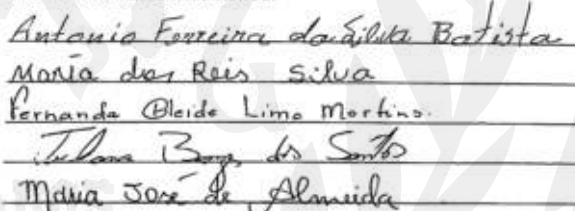 Antonio Ferreira da Silva Batista
Maria dos Reis Silva
Fernanda Cleide Lima Martins.
dos Santos
Maria José de Almeida